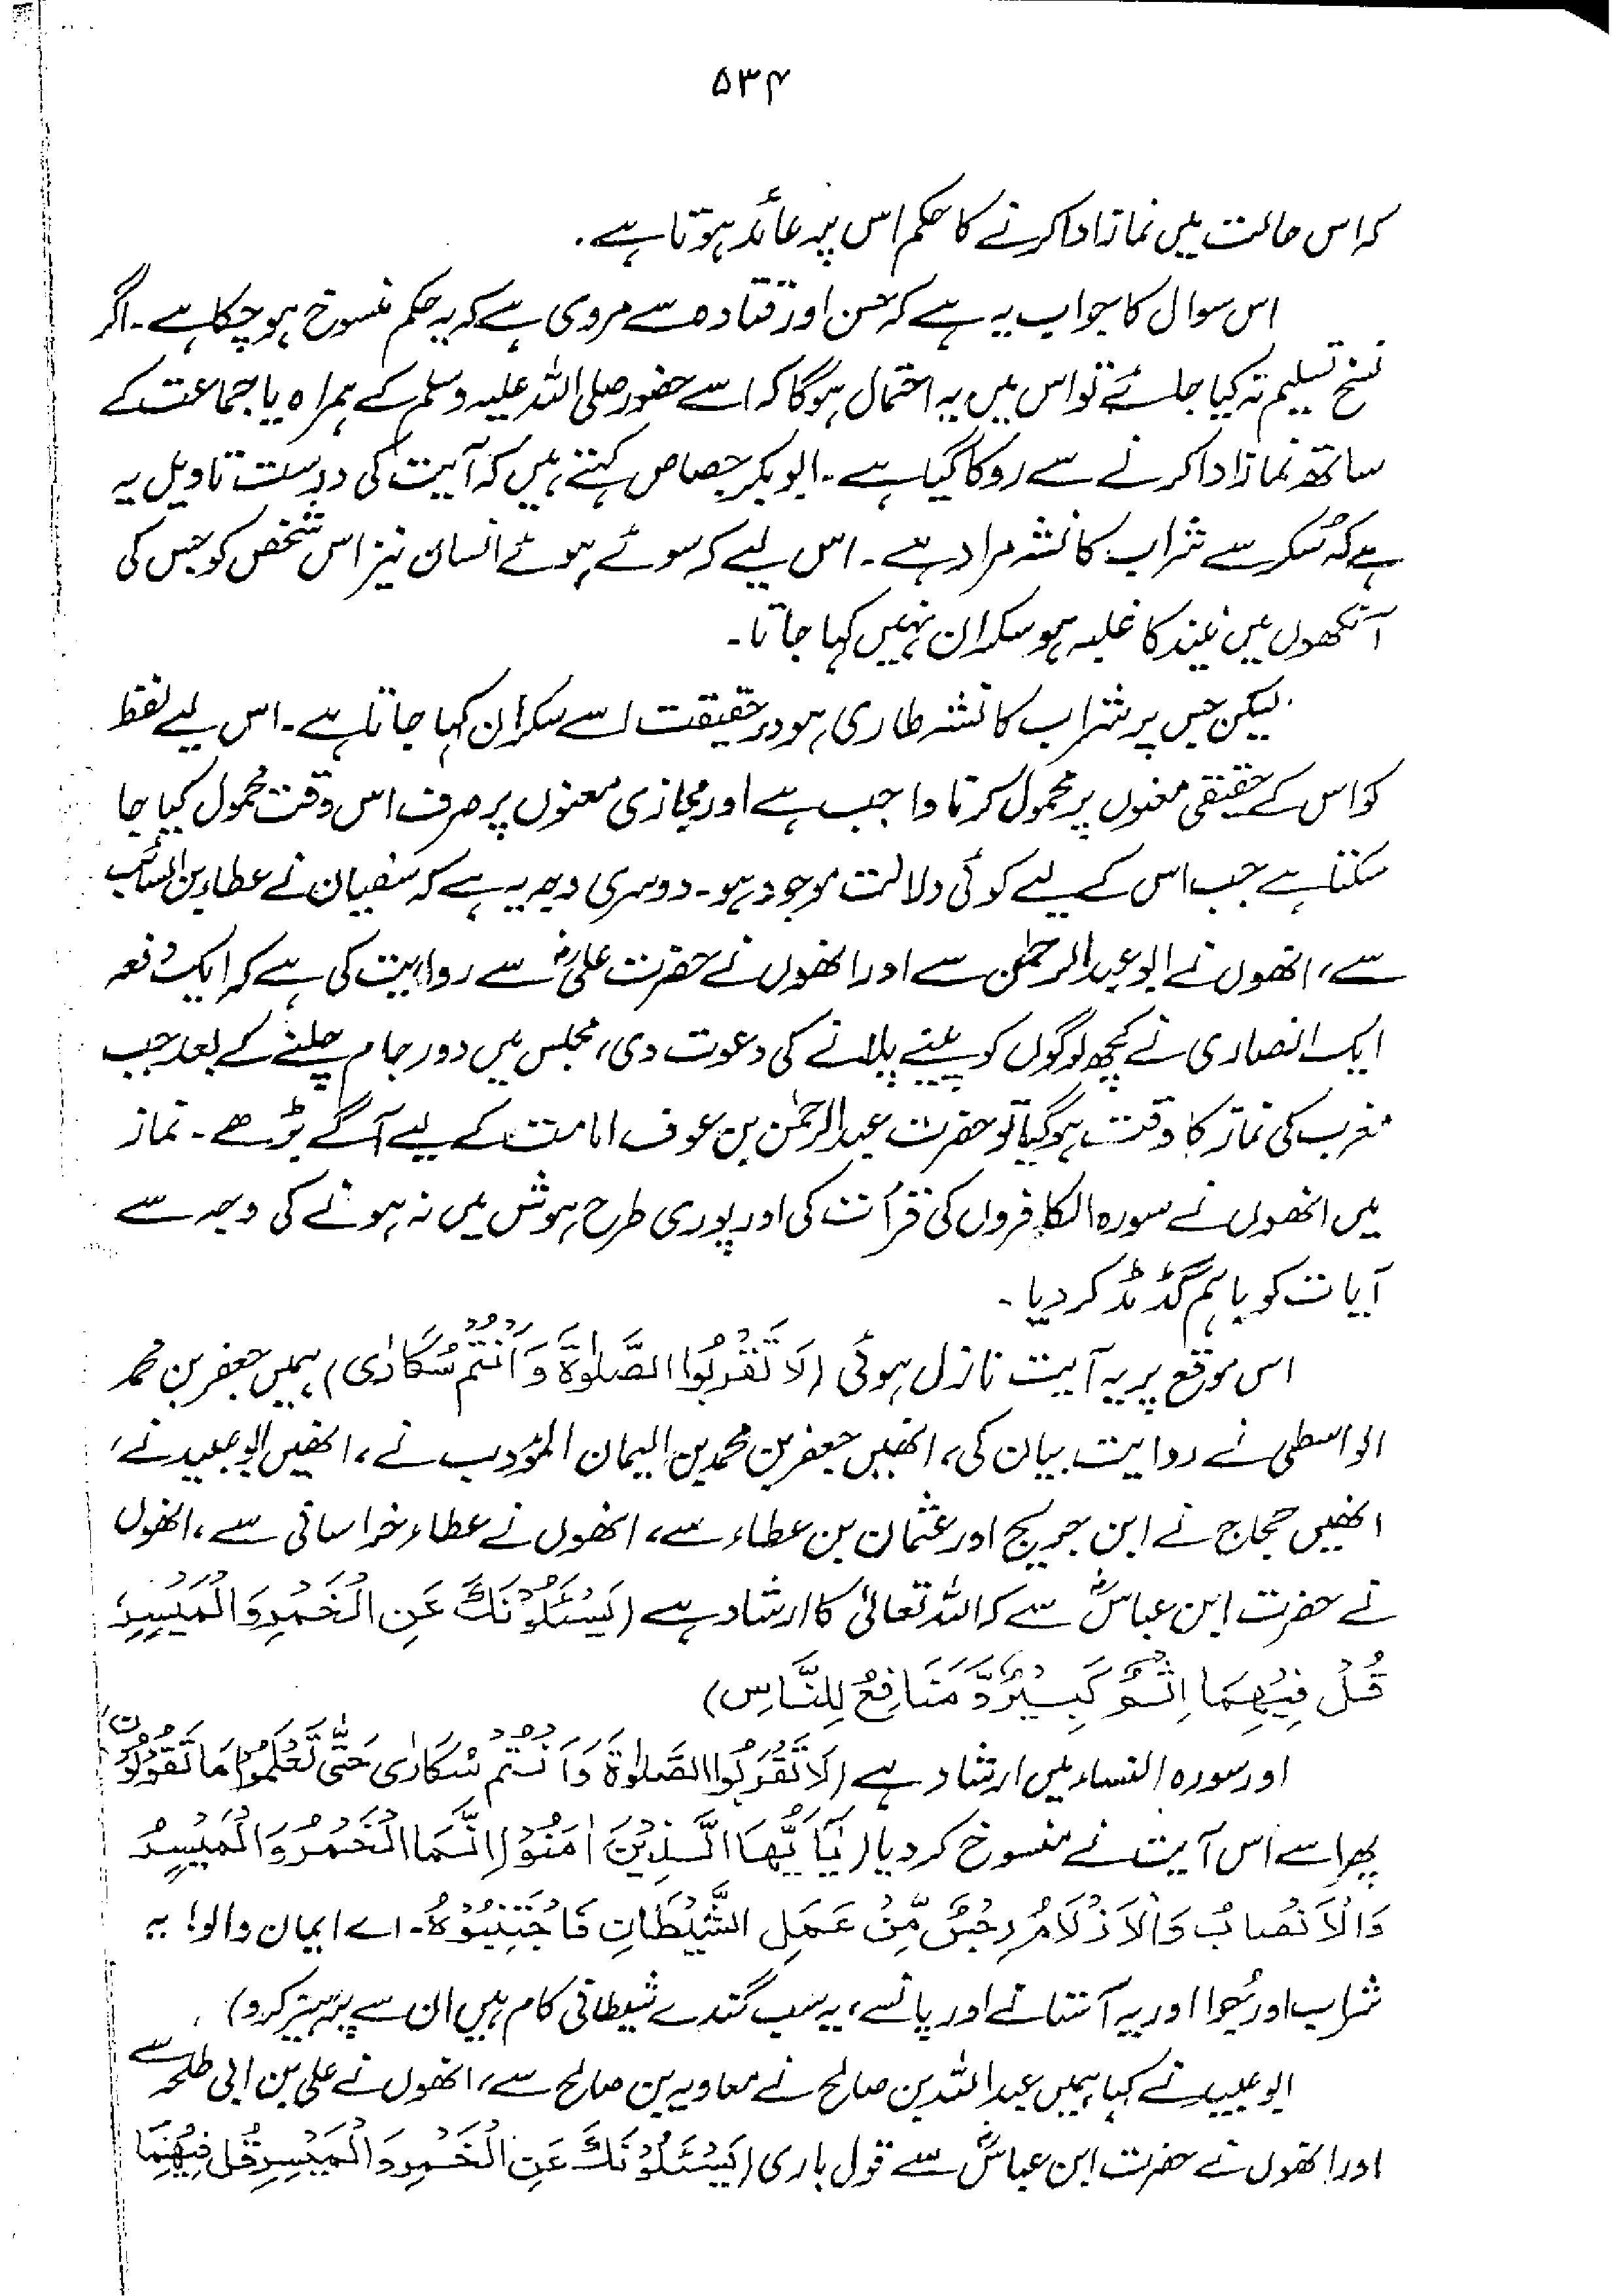 ۵۳۴
کہ اس حالت میں نماز ادا کرنے کا حکم اس پر عائد ہوتا ہے.
اس سوال کا جواب یہ ہے کہ حسن اور قتادہ سے مروی ہے کہ یہ حکم منسوخ ہو چکا ہے۔ اگر
نسخ تسلیم نہ کیا جائے تو اس میں یہ احتمال ہوگا کہ اسے حضور صلی اللہ علیہ وسلم کے ہمراہ یا جماعت کے
ساتھ نماز ادا کرنے سے روکا گیا ہے۔ ابوبکر جصاص کہتے ہیں کہ آیت کی درست تاویل یہ
ہے کہ سُکر سے شراب کا نشہ مراد ہے۔ اس لیے کہ سوئے ہوئے انسان نیز اس شخص کو جس کی
آنکھوں میں نیند کا غلبہ ہو سکران نہیں کہا جاتا۔
لیکن جس پر شراب کا نشہ طاری ہو درحقیقت اسے سکران کہا جاتا ہے۔ اس لیے لفظ
کو اس کے حقیقی معنوں پر محمول کرنا واجب ہے اور مجازی معنوں پر صرف اس وقت محمول کیا جا
سکتا ہے جب اس کے لیے کوئی دلالت موجود ہو۔ دوسری وجہ یہ ہے کہ سفیان نے عطاء بن السائب
سے، انھوں نے ابو عبدالرحمٰن سے اور انھوں نے حضرت علیؓ سے روایت کی ہے کہ ایک دفعہ
ایک انصاری نے کچھ لوگوں کو پینے پلانے کی دعوت دی، مجلس میں دور جام چلنے کے بعد جب
مغرب کی نماز کا وقت ہوگیا تو حضرت عبدالرحمٰن بن عوف امامت کے لیے آگے بڑھے۔ نماز
میں انھوں نے سورہ الکافروں کی قرأت کی اور پوری طرح ہوش میں نہ ہونے کی وجہ سے
آیات کو باہم گڈمڈ کر دیا۔
اس موقع پر یہ آیت نازل ہوئی (لَا تَقْرَبُوا الصَّلٰوةَ وَاَنْتُمْ سُكَارٰى) ہمیں جعفر بن محمد
الواسطی نے روایت بیان کی، انھیں جعفر بن محمد بن الیمان المؤدب نے، انھیں ابو عبید نے،
انھیں حجاج نے ابن جریج اور عثمان بن عطاء سے، انھوں نے عطاء خراسانی سے، انھوں
نے حضرت ابن عباسؓ سے کہ اللہ تعالیٰ کا ارشاد ہے (يَسْئَلُوْنَكَ عَنِ الْخَمْرِ وَالْمَيْسِرِ
قُلْ فِيْهِمَا اِثْمٌ كَبِيْرٌ وَّ مَنَافِعُ لِلنَّاسِ)
اور سورہ النساء میں ارشاد ہے (لَا تَقْرَبُوا الصَّلٰوةَ وَاَنْتُمْ سُكَارٰى حَتّٰى تَعْلَمُوْا مَا تَقُوْلُوْنَ)
پھر اسے اس آیت نے منسوخ کر دیا (يَا اَيُّهَا الَّذِيْنَ اٰمَنُوْا اِنَّمَا الْخَمْرُ وَالْمَيْسِرُ
وَالْاَنْصَابُ وَالْاَزْلَامُ رِجْسٌ مِّنْ عَمَلِ الشَّيْطَانِ فَاجْتَنِبُوْهُ۔ اے ایمان والو! یہ
شراب اور جُوا اور یہ آستانے اور پانسے، یہ سب گندے شیطانی کام ہیں ان سے پرہیز کرو)
ابو عبید نے کہا ہمیں عبداللہ بن صالح نے معاویہ بن صالح سے، انھوں نے علی بن ابی طلحہ سے
اور انھوں نے حضرت ابن عباسؓ سے قول باری (يَسْئَلُوْنَكَ عَنِ الْخَمْرِ وَالْمَيْسِرِ قُلْ فِيْهِمَا